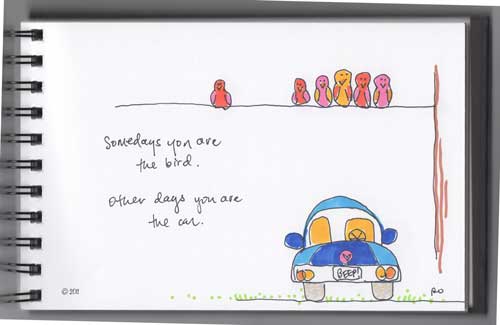 Somedays you are
the bird.
Other days you are
the car.
BEEP!
© 2011
RO